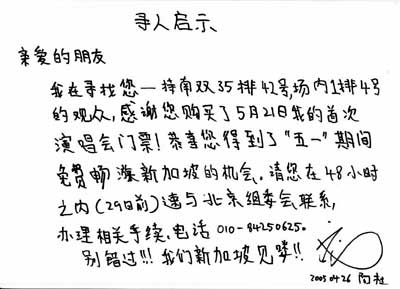 寻人启示
亲爱的朋友
我在寻找您一持南双35排42号,场内1排4号
的观众,感谢您购买了5月21日我的首次
演唱会门票!恭喜您得到了"五一"期间
免费畅游新加坡的机会。请您在48小时
之内(29日前)速与北京组委会联系,
办理相关手续,电话010-84250625。
别错过!!!我们新加坡见喽!!
2005.04.26